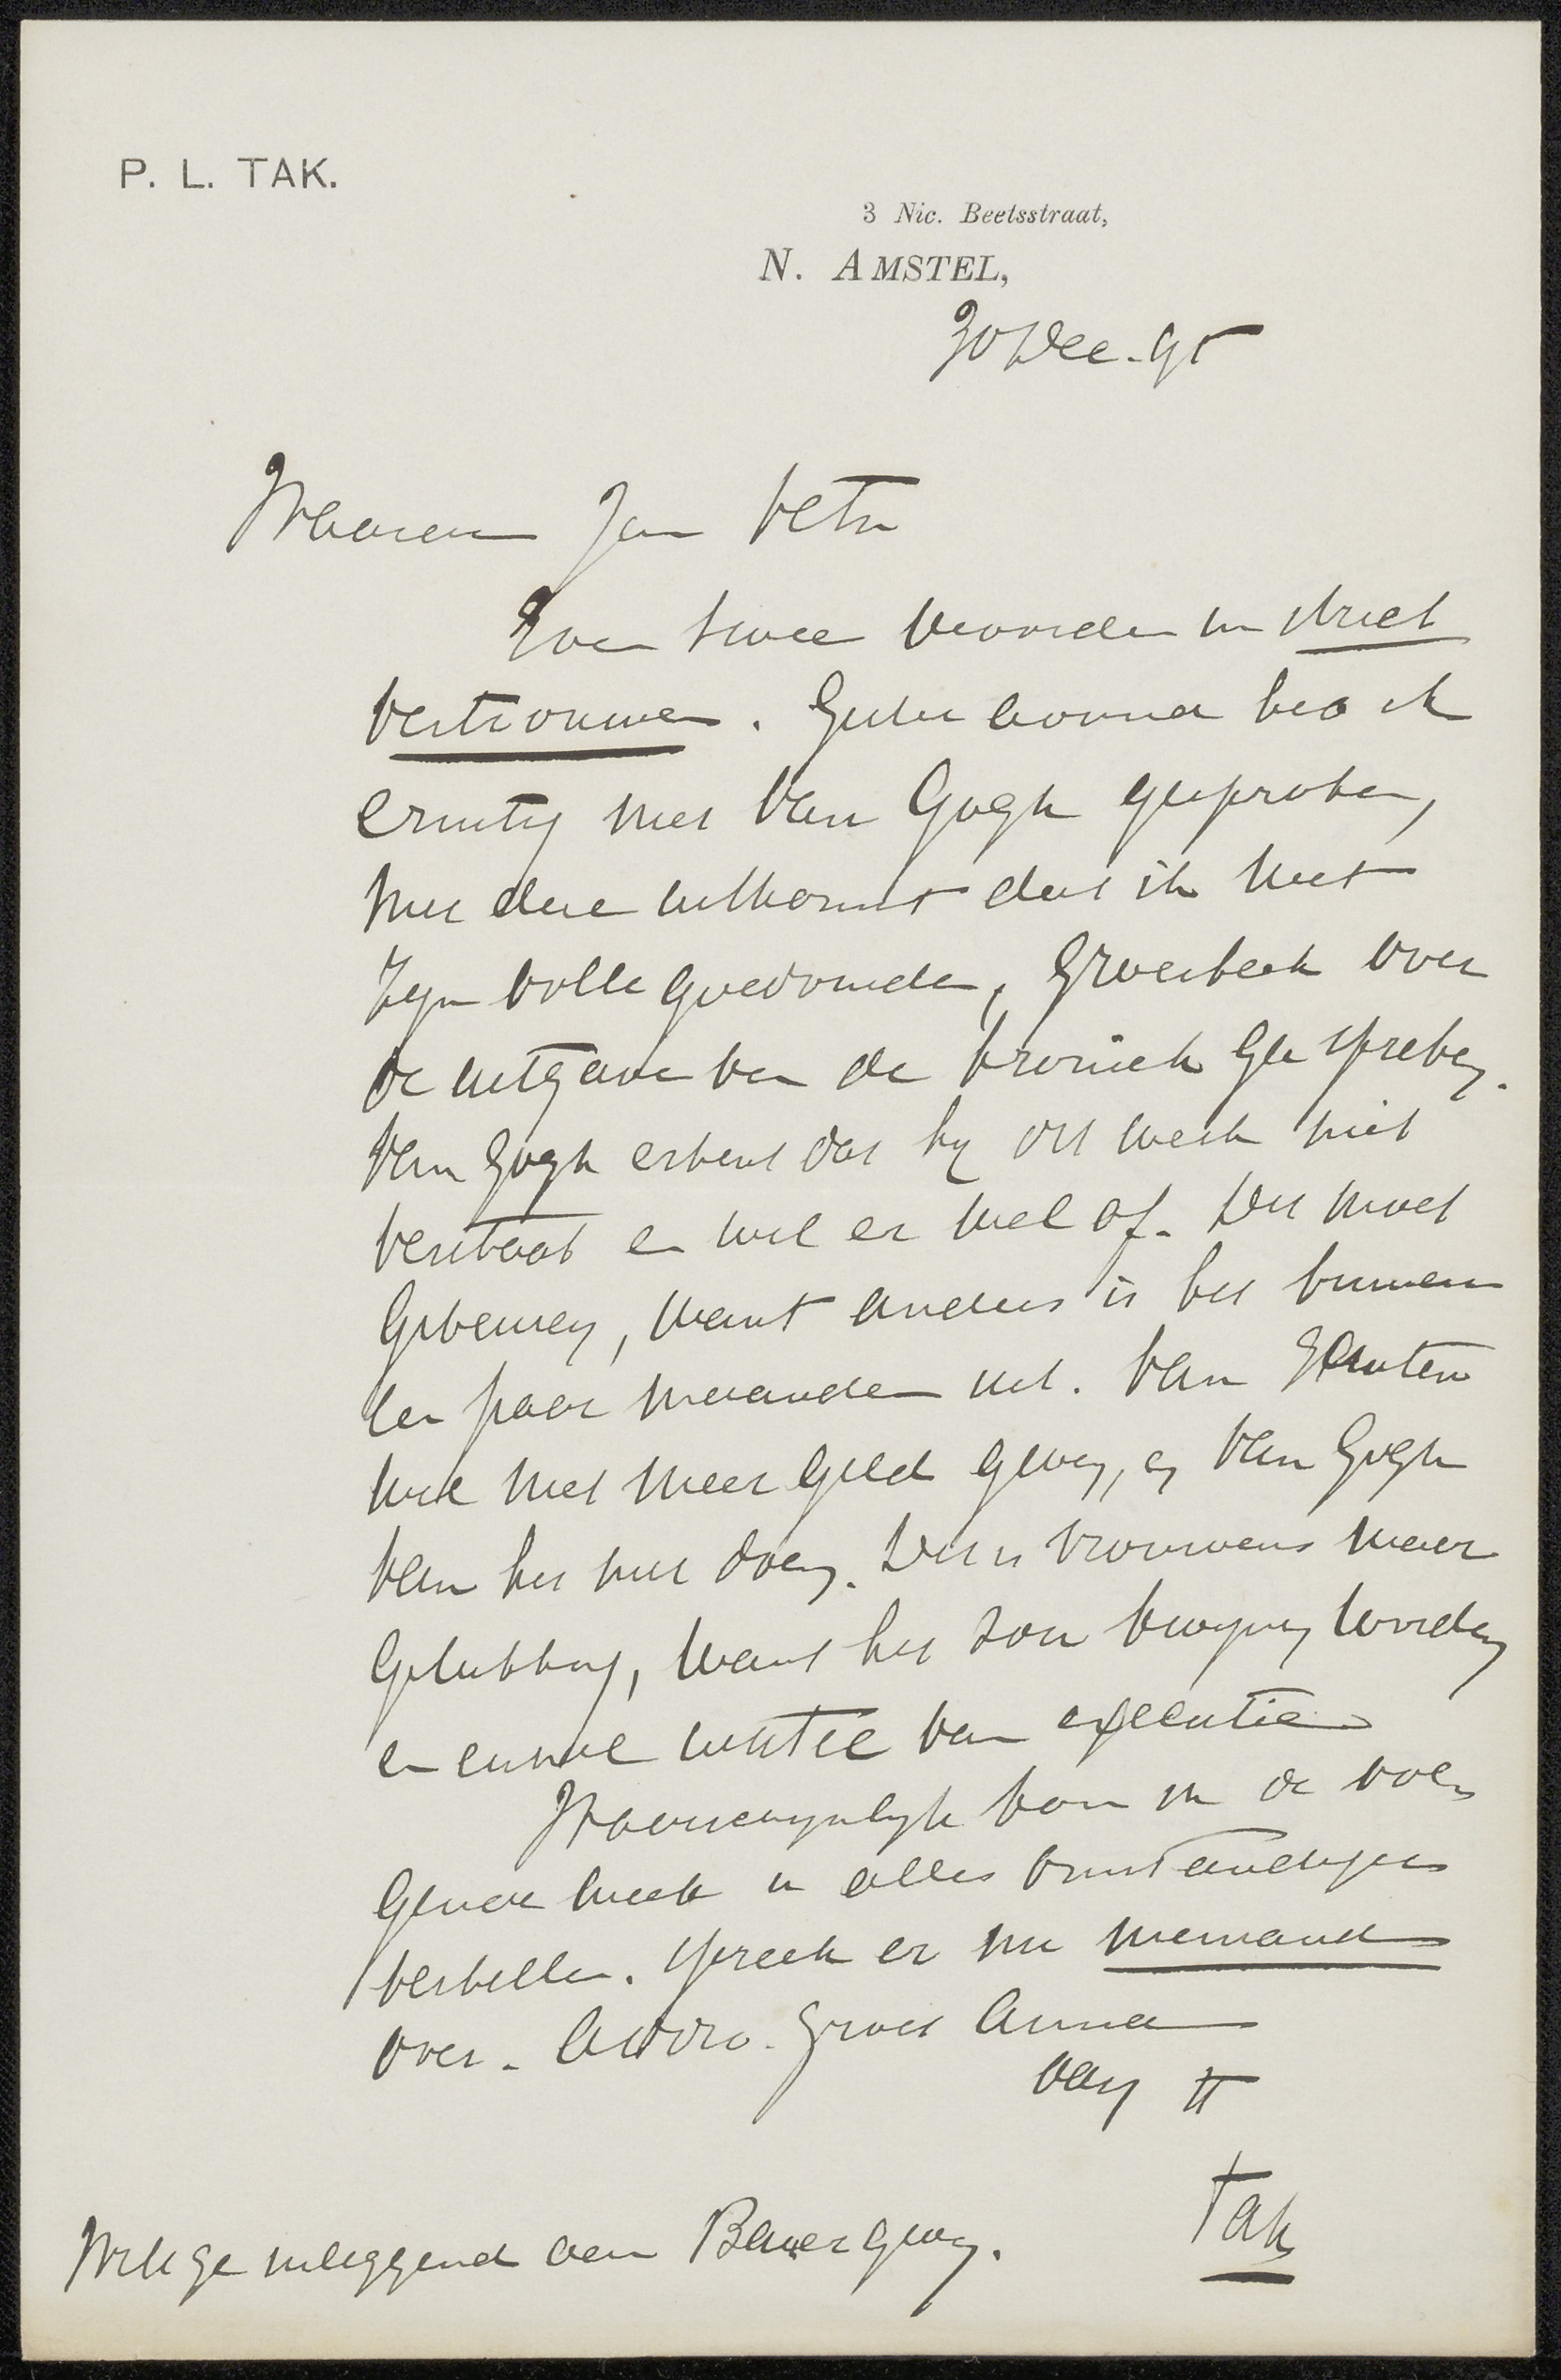 P. L. TAK.
3 Nic. Beetsstraat,
N. AMSTEL,
30 Dec. 95
Waarde Jan Veth
Even twee woorden in strict
vertrouwen. Gister avond heb ik
ernstig met Van Gogh gesproken,
met deze uitkomst dat ik met
zijn volle goedvinden, Groesbeek over
de uitgave van de kroniek ga spreken.
Van Gogh erkent dat hij dit werk niet
verstaat en wil er wel af. Dit moet
gebeuren, want anders is het binnen
een paar maanden uit. Van
wil niet meer geld geven, en Van Gogh
kan het niet doen. Dit is trouwens maar
gelukkig, want het zou worden
en van executie
Waarschijnlijk kom ik de vol-
gende week u alles omstandiger
vertellen. Spreek er nu niemand
over. Groet Anna
van tt
Tak
Wil je inleggend aan Bauer geven.